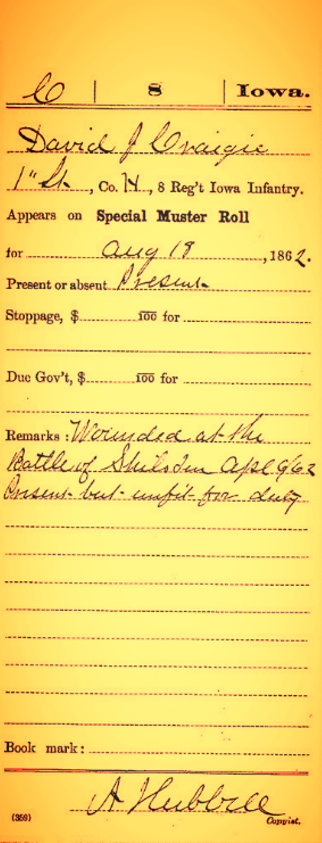 C | 8 | Iowa.
David J Craigie
1" Lt, Co. H, 8 Reg't Iowa Infantry.
Appears on Special Muster Roll
for Aug 18, 1862.
Present or absent Present
Stoppage, $ 100 for
Due Gov't, $ 100 for
Remarks: Wounded at the
Battle of Shiloh Apl 6/62
Present but unfit for duty
Book mark:
A Hubbell
(359) Copyist.